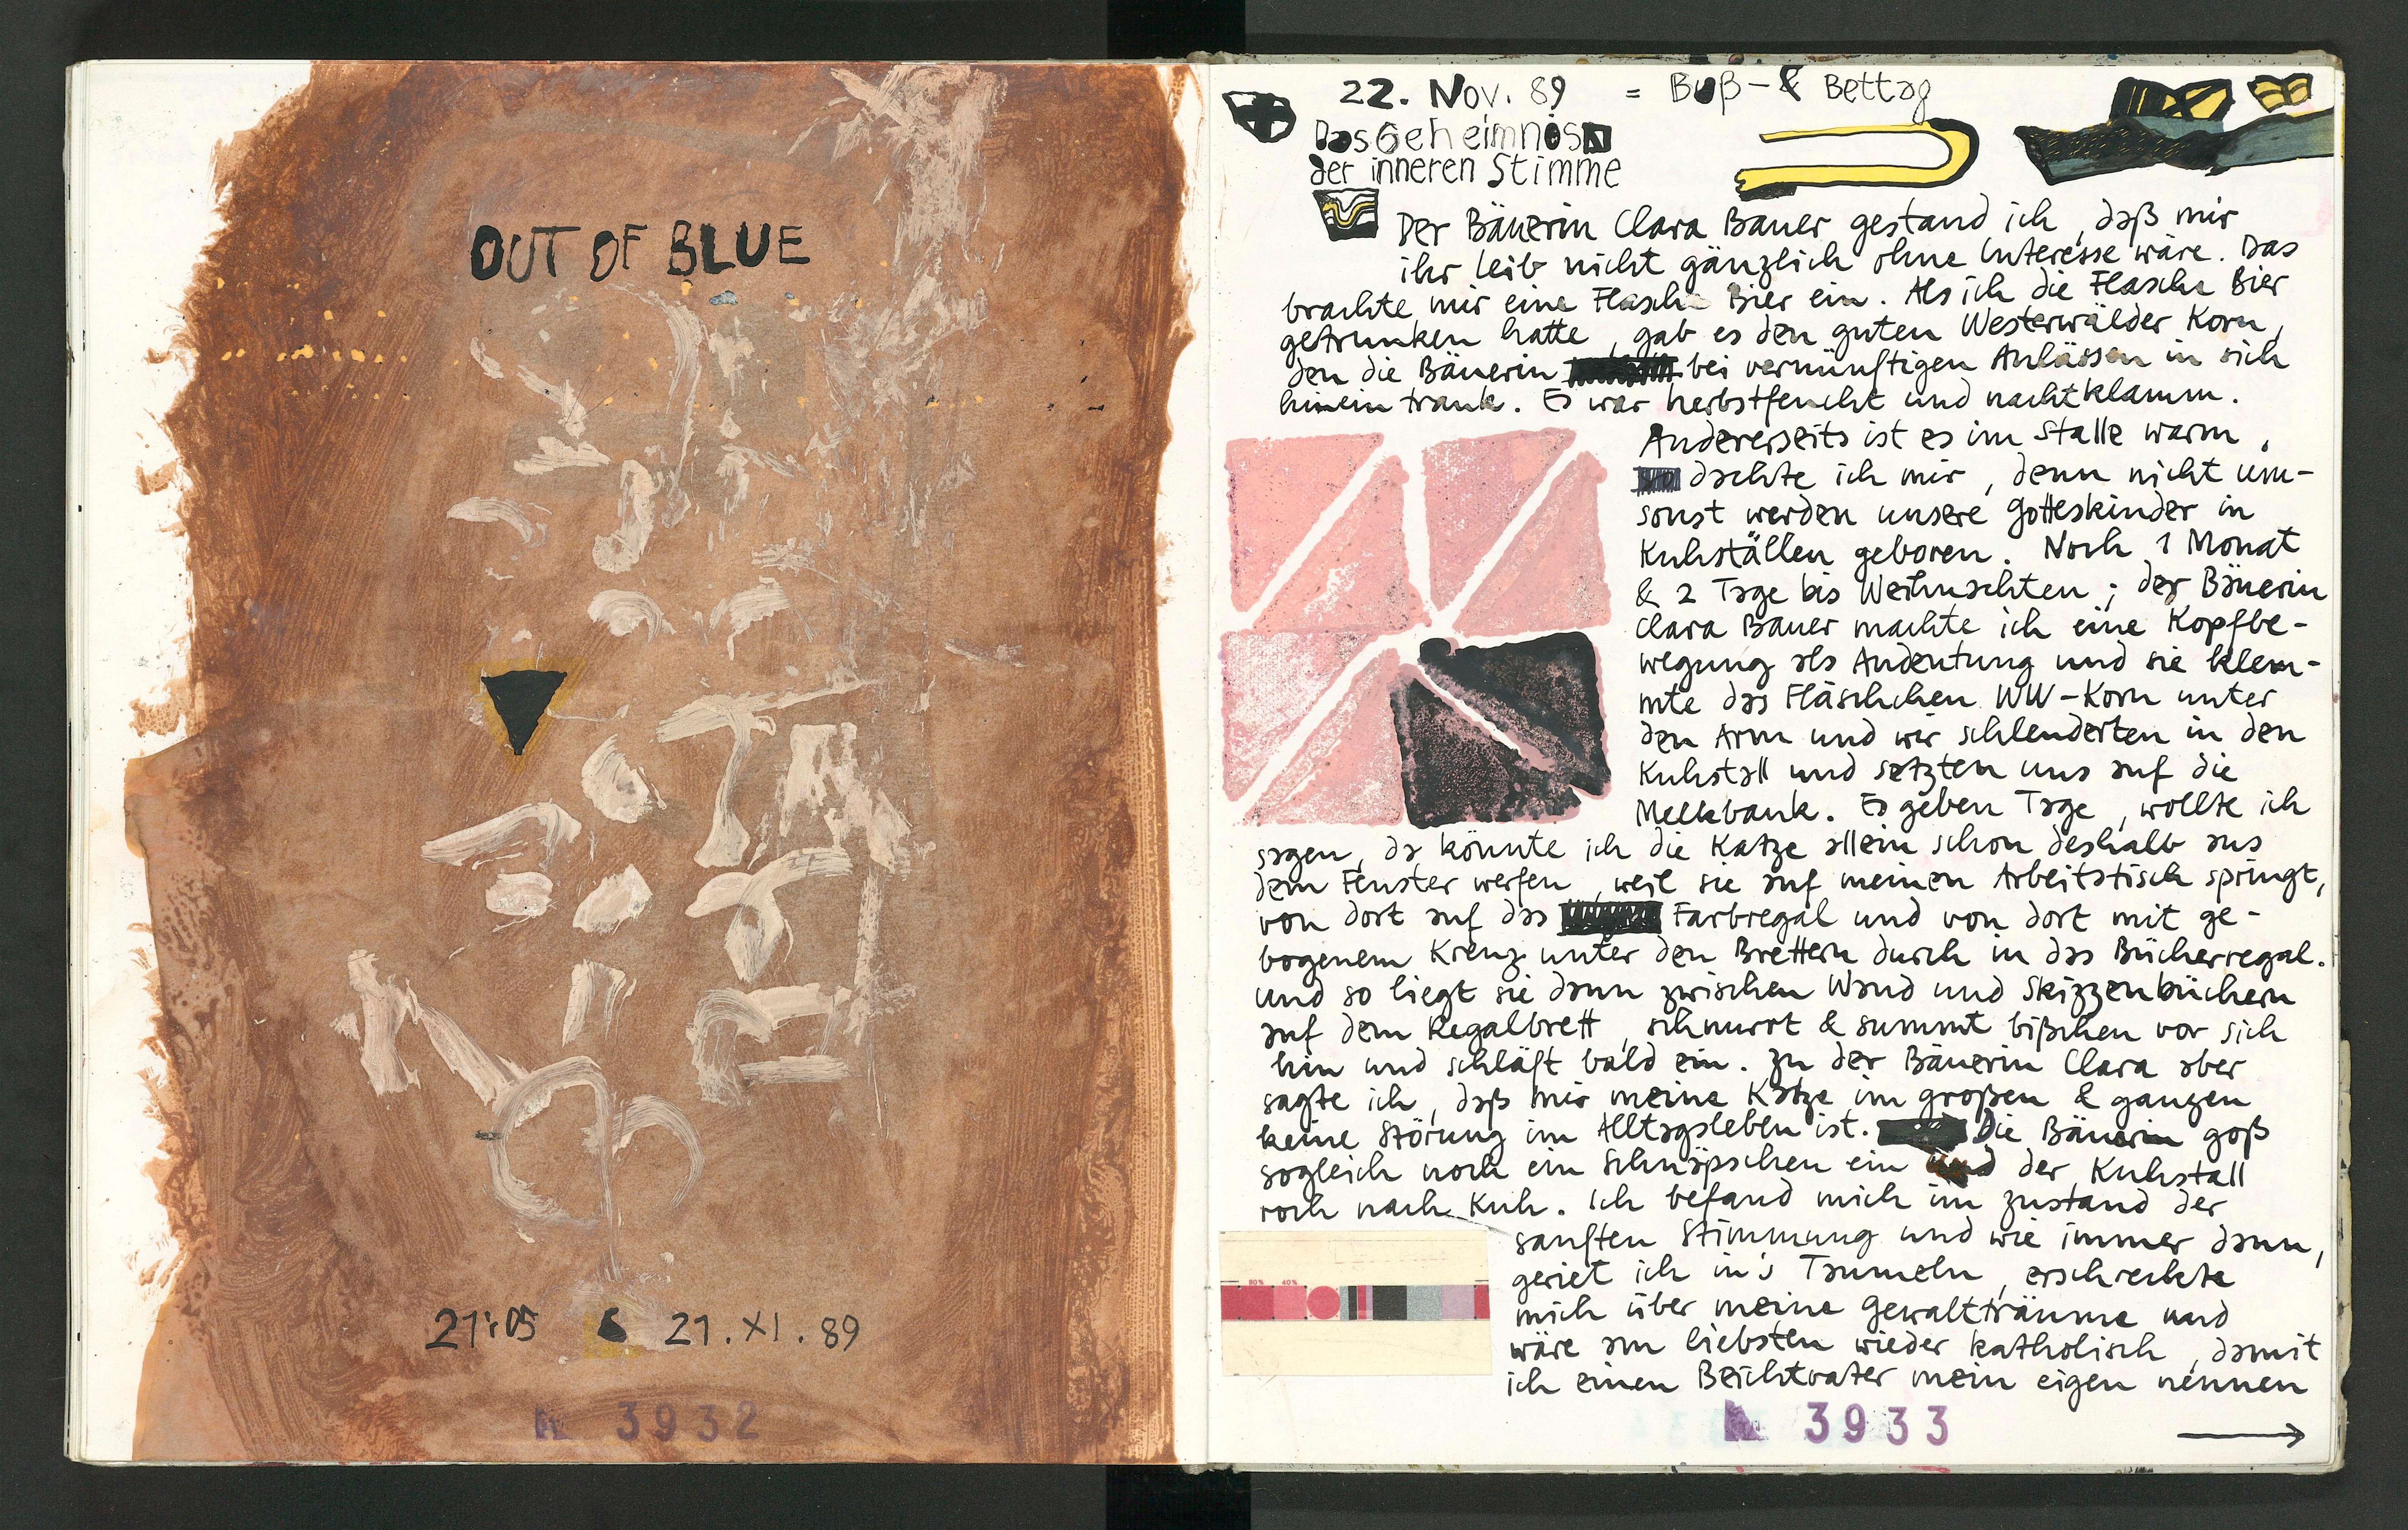 OUT OF BLUE
21:05 21.XI.89
3932
22. Nov. 89 = Buß- & Bettag
Das Geheimnis
der inneren Stimme
Der Bäuerin Clara Bauer gestand ich, daß mir
ihr Leib nicht gänzlich ohne Interesse wäre. Das
brachte mir eine Flasche Bier ein. Als ich die Flasche Bier
getrunken hatte, gab es den guten Westerwälder Korn,
den die Bäuerin bei vernünftigen Anlässen in sich
hinein trank. Es war herbstfeucht und nachtklamm.
Andererseits ist es im Stalle warm,
dachte ich mir, denn nicht um-
sonst werden unsere Gotteskinder in
Kuhställen geboren. Noch 1 Monat
& 2 Tage bis Weihnachten; der Bäuerin
Clara Bauer machte ich eine Kopfbe-
wegung als Andeutung und sie klem-
mte das Fläschchen WW-Korn unter
den Arm und wir schlenderten in den
Kuhstall und setzten uns auf die
Melkbank. Es geben Tage, wollte ich
sagen, da könnte ich die Katze allein schon deshalb aus
dem Fenster werfen, weil sie auf meinen Arbeitstisch springt,
von dort auf das Farbregal und von dort mit ge-
bogenem Kreuz unter den Brettern durch in das Bücherregal.
Und so liegt sie dann zwischen Wand und Skizzenbüchern
auf dem Regalbrett, schnurrt & summt bißchen vor sich
hin und schläft bald ein. Zu der Bäuerin Clara aber
sagte ich, daß mir meine Katze im großen & ganzen
keine Störung im Alltagsleben ist. Die Bäuerin goß
sogleich noch ein Schnäpschen ein und der Kuhstall
roch nach Kuh. Ich befand mich im Zustand der
sanften Stimmung und wie immer dann,
geriet ich in's Taumeln, erschreckte
mich über meine Gewaltträume und
wäre am liebsten wieder katholisch, damit
ich einen Beichtvater mein eigen nennen
80% 40%
3933